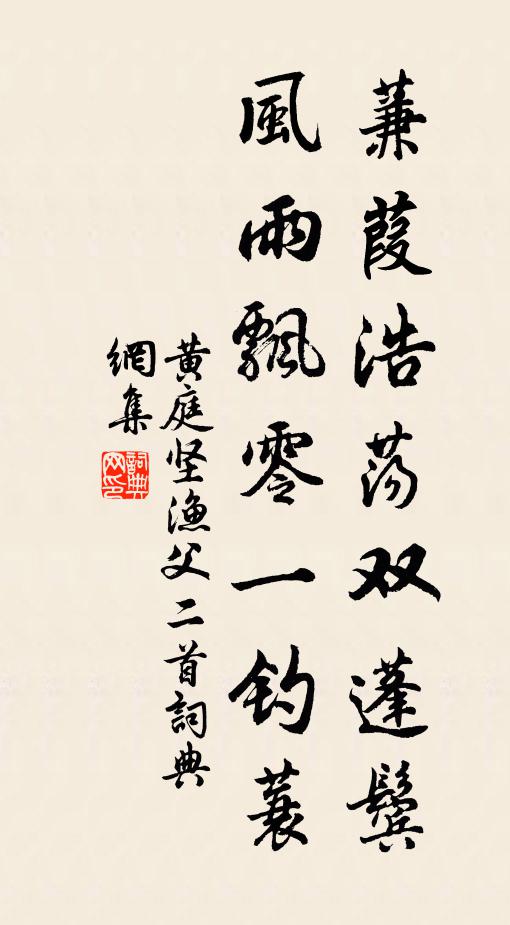 蒹葭浩荡双蓬鬓
風雨飄零一釣蓑
黄庭坚漁父二首詞典
網集
詞典
网印